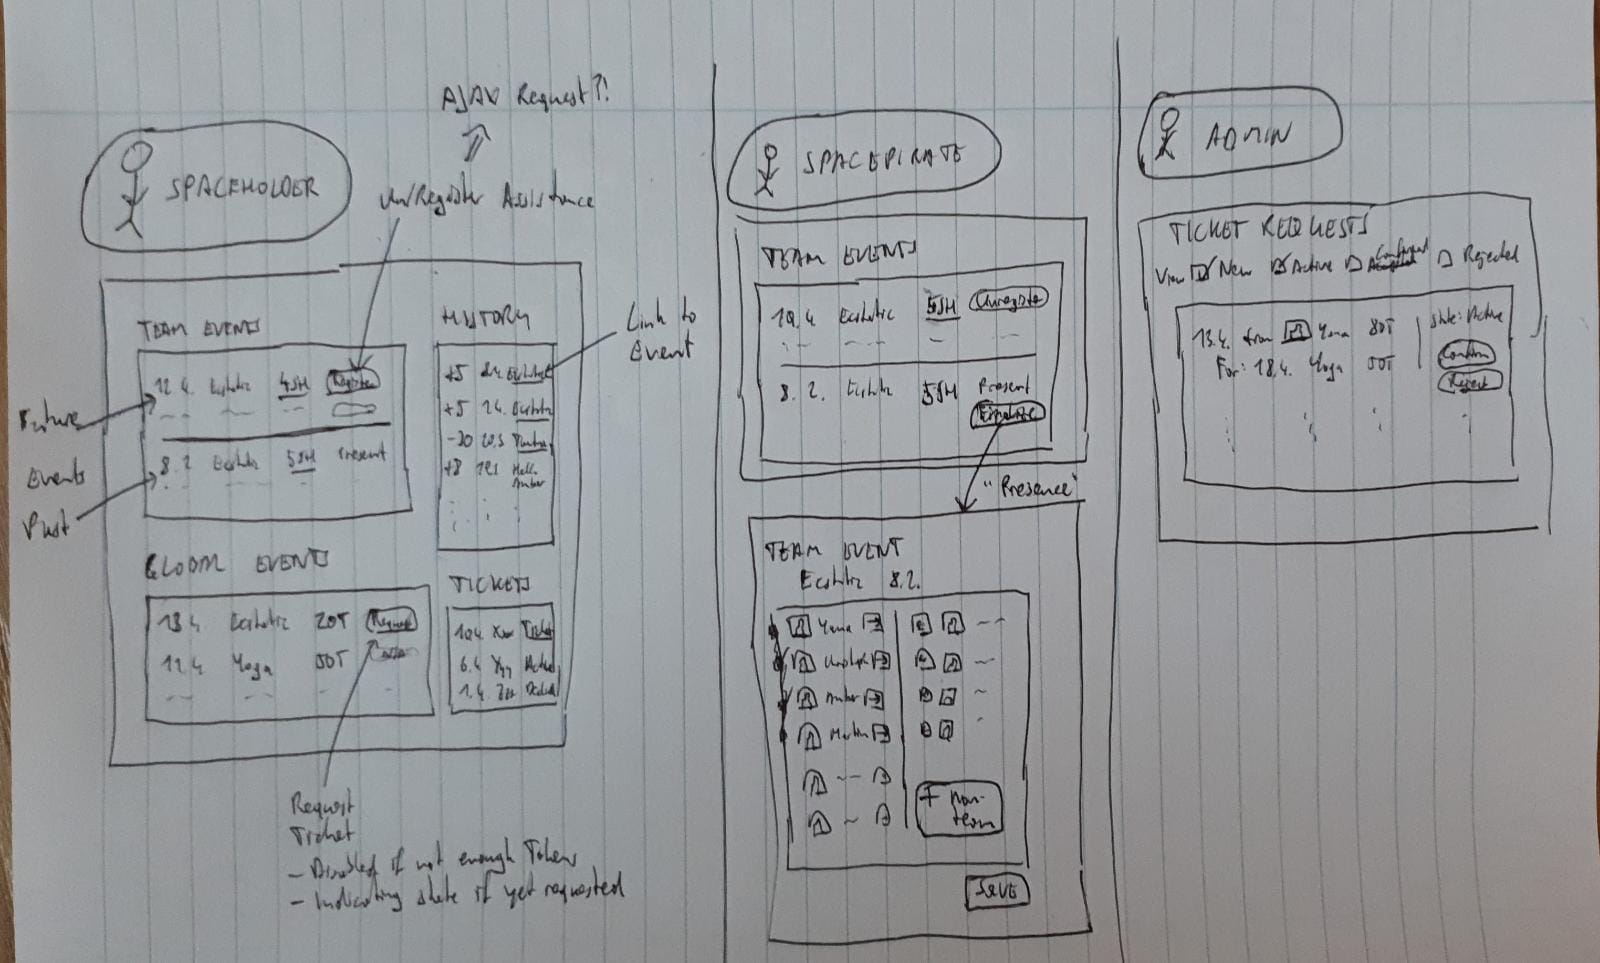 AJAX Request?!
SPACEHOLDER
Un/Register Assistance
TEAM EVENTS
12. 4. Ecstatic 4SH Register
8. 2 Ecstatic 5SH Present
Future
Events
Past
HISTORY
+5 Ecstatic
+5 Ecstatic
-20
+8
Amber
Link to
Event
GLOOM EVENTS
13 4. Ecstatic 20T Request
12. 4 Yoga
TICKETS
Ticket
6. 4 Active
1. 4.
Request
Ticket
- Disabled if not enough Tokens
- Indicating state if yet requested
SPACEPIRATE
TEAM EVENTS
Ecstatic 5SH Unregister
8. 2. Ecstatic 5SH Present
Finalize
"Presence"
TEAM EVENT
Ecstatic 8.2.
Yana
Amber
Martin
+ Non-
team
SAVE
ADMIN
TICKET REQUESTS
View New Active Confirmed Rejected
13. 4. from Yana State: Active
For: 18. 4. Yoga Confirm
Reject